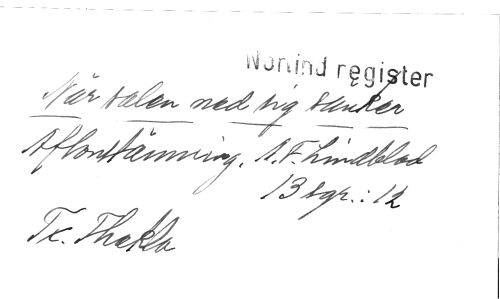 Norlind register
När solen ned sig sänker
Aftonstämning. A. F. Lindblad
13 sgr.: 12
Tx. Thekla